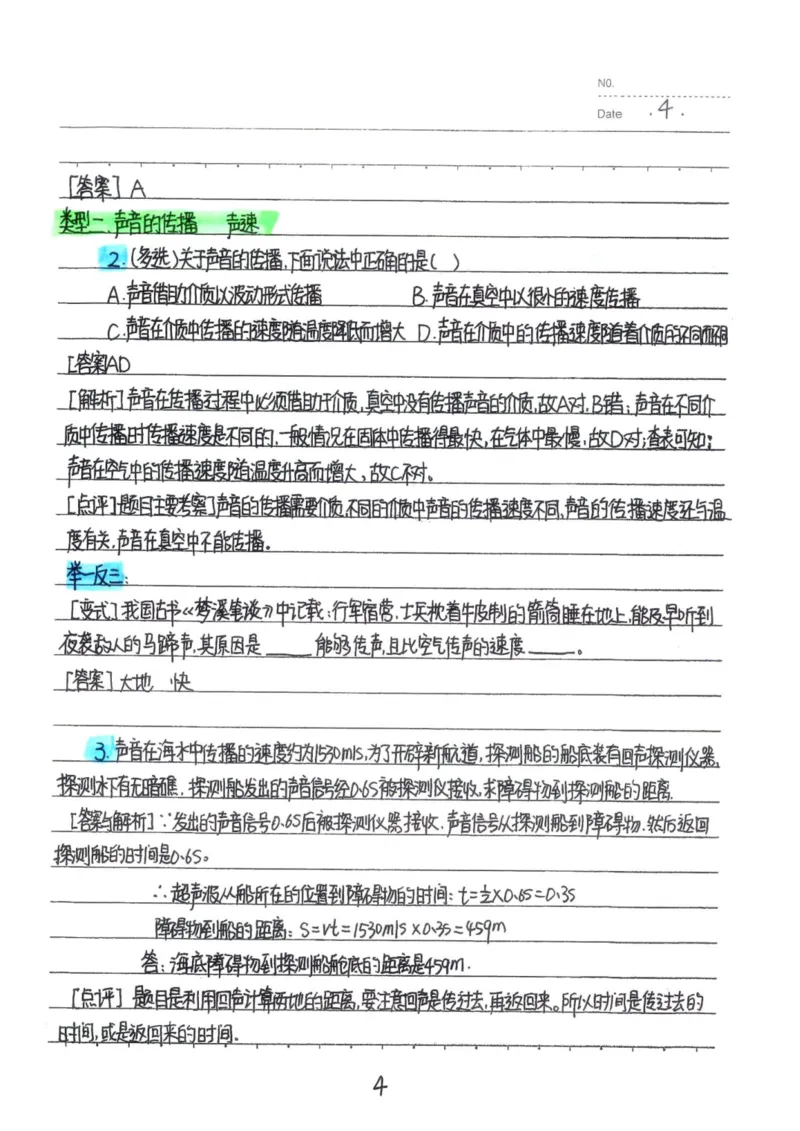 NO.
Date ·4·
[答案] A
类型二、声音的传播 声速
2.(多选)关于声音的传播,下面说法中正确的是( )
A.声音借助介质以波动形式传播 B.声音在真空中以很小的速度传播
C.声音在介质中传播的速度随温度降低而增大 D.声音在介质中的传播速度随着介质的不同而不同
[答案]AD
[解析]声音在传播过程中必须借助于介质,真空中没有传播声音的介质,故A对,B错;声音在不同介
质中传播时传播速度是不同的,一般情况在固体中传播得最快,在气体中最慢,故D对;查表可知:
声音在空气中的传播速度随温度升高而增大,故C不对。
[点评]题目主要考察了声音的传播需要介质,不同的介质中声音的传播速度不同,声音的传播速度还与温
度有关,声音在真空中不能传播。
举一反三:
[变式]我国古书《梦溪笔谈》中记载:行军宿营,士兵枕着牛皮制的箭筒睡在地上,能及早听到
夜袭敌人的马蹄声,其原因是____能够传声,且比空气传声的速度____。
[答案]大地 快
3.声音在海水中传播的速度约为1530m/s,为了开辟新航道,探测船的船底装有回声探测仪器,
探测水下有无暗礁,探测船发出的声音信号经0.6S被探测仪接收,求障碍物到探测船的距离.
[答案与解析]∵发出的声音信号0.6S后被探测仪器接收,声音信号从探测船到障碍物,然后返回
探测船的时间是0.6s。
∴超声波从船所在的位置到障碍物的时间:t=½×0.6s=0.3s
障碍物到船的距离:S=vt=1530m/s×0.3s=459m
答:海底障碍物到探测船舱底的距离是459m.
[点评] 题目是利用回声计算两地的距离,要注意回声是传过去,再返回来。所以时间是传过去的
时间,或是返回来的时间.
4